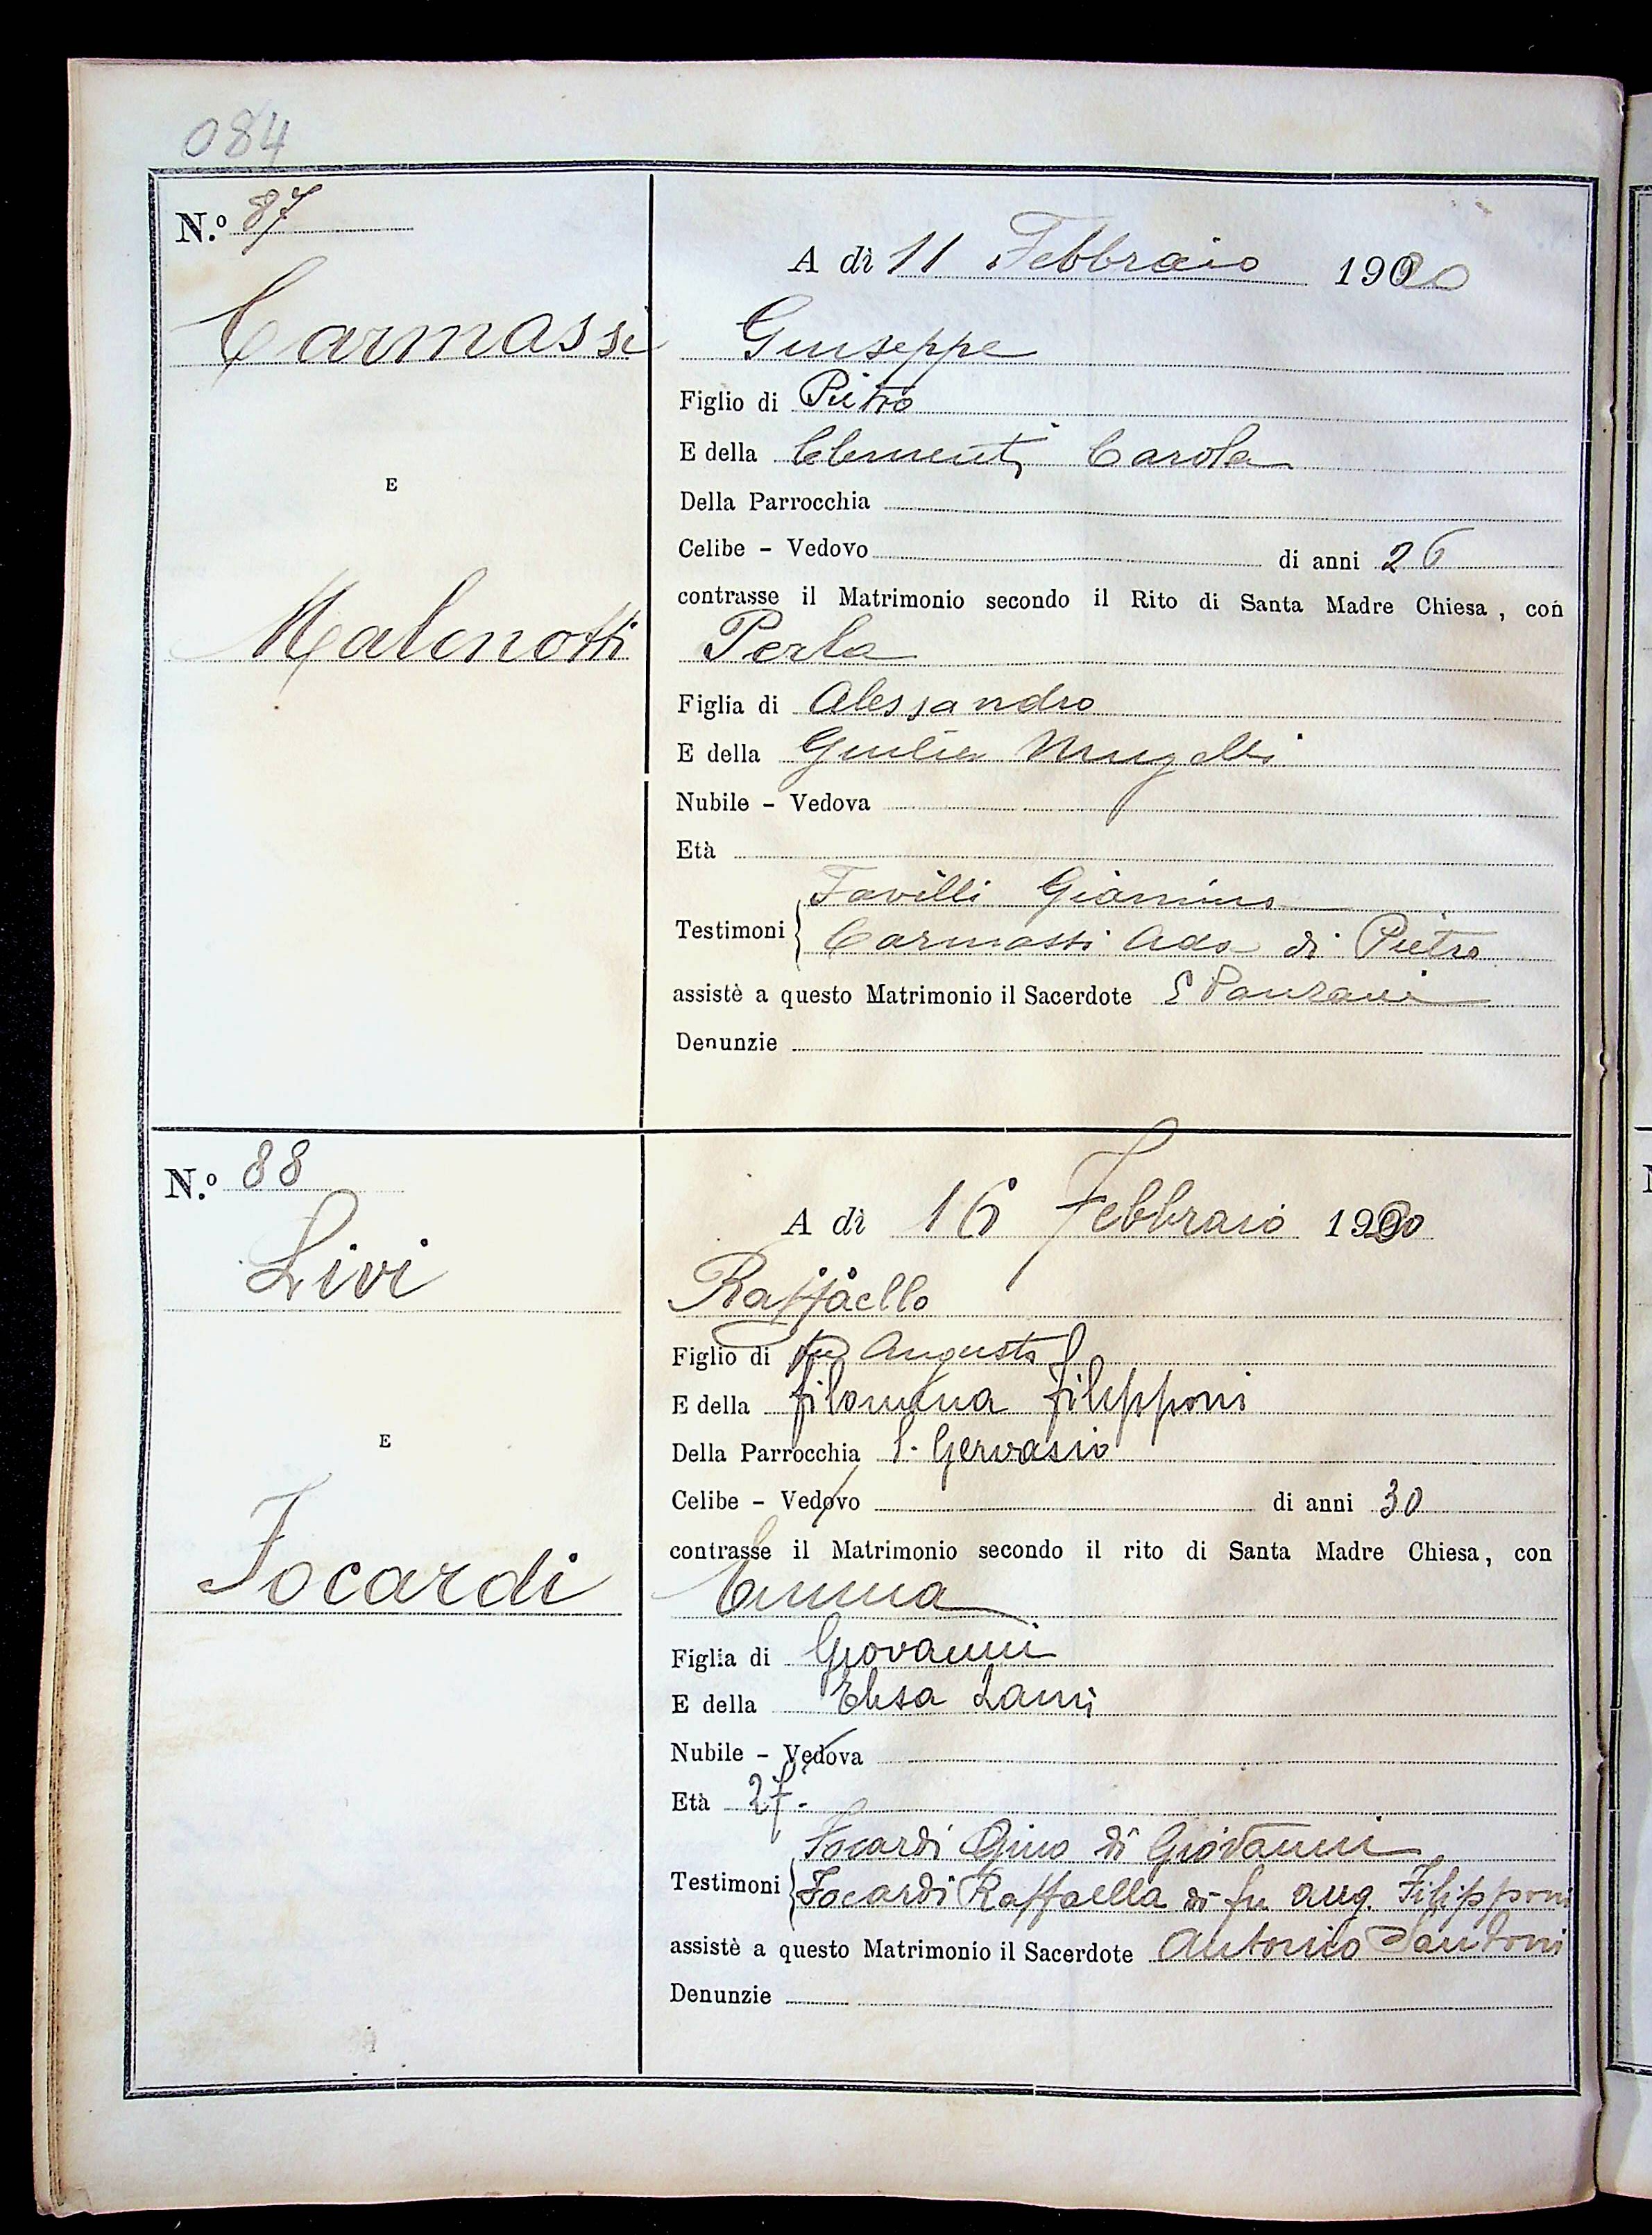 084
N.º 87
A dì 11 Febbraio 1920
Carmassi
Giuseppe
Figlio di Pietro
E della Clementi Carola
Della Parrocchia
E
Celibe - Vedovo di anni 26
contrasse il Matrimonio secondo il Rito di Santa Madre Chiesa, con
Malenotti
Perla
Figlia di Alessandro
E della Giulia Mugelli
Nubile - Vedova
Età
Favilli Giannino
Testimoni
Carmassi Ada di Pietro
assistè a questo Matrimonio il Sacerdote
Denunzie
N.º 88
A dì 16 Febbraio 1920
Livi
Raffaello
Figlio di fu Augusto
E della Filomena Filipponi
E
Della Parrocchia S. Gervasio
Celibe - Vedovo di anni 30
contrasse il Matrimonio secondo il rito di Santa Madre Chiesa, con
Focardi
Emma
Figlia di Giovanni
E della Elisa Lami
Nubile - Vedova
Età 27.
Focardi Gino di Giovanni
Testimoni
Focardi Raffaella di fu Aug. Filipponi
assistè a questo Matrimonio il Sacerdote Antonio Santoni
Denunzie